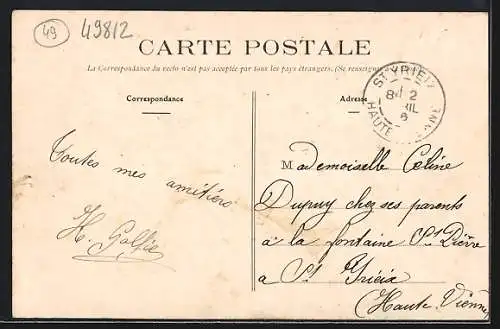 49
49812
CARTE POSTALE
La Correspondance du recto n'est pas acceptée par tous les pays étrangers. (Se renseigner à la
Correspondance
Adresse
ST YRIEIX
8 2
IL
6
HAUTE ENNE
Toutes mes amitiés
H.
Mademoiselle Celine
Dupuy chez ses parents
à la fontaine St
a St Yrieix
(Haute Vienne